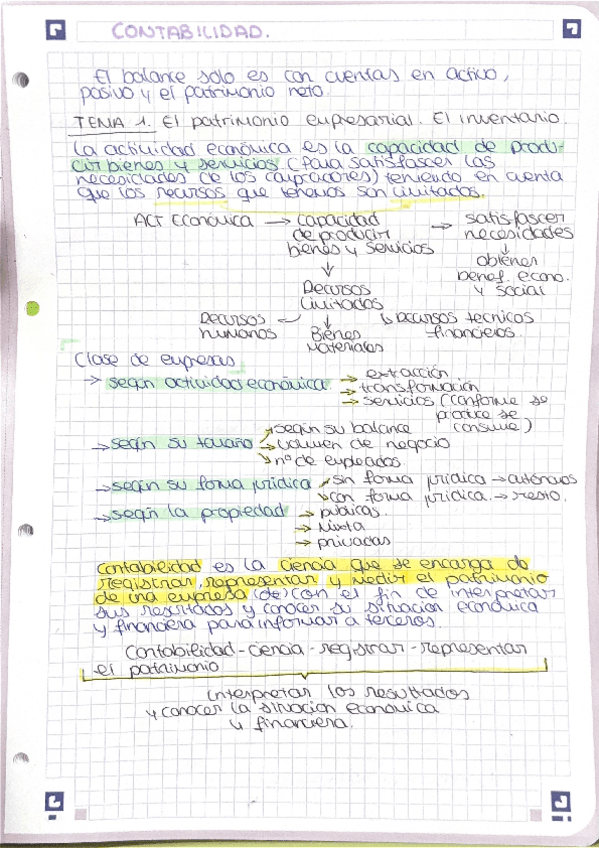 CONTABILIDAD.
El balance solo es con cuentas en activo,
pasivo y el patrimonio neto.
TEMA 1. El patrimonio empresarial. El inventario.
La actividad económica es la capacidad de produ-
cir bienes y servicios (para satisfascer las
necesidades de los compradores) teniendo en cuenta
que los recursos que tenemos son limitados.
ACT Económica → capacidad de producir bienes y servicios → satisfascer necesidades
↓ obtener benef. econo. y social
↓ Recursos limitados
Recursos humanos
Bienes materiales
↳ Recursos tecnicos financieros.
Clase de empresas
→ según actividad económica → extracción
→ transformación
→ servicios (conforme se
produce se
consume)
→ según su tamaño → según su balance
→ volumen de negocio
→ nº de empleados.
→ según su forma jurídica → sin forma jurídica → autónomos
→ con forma jurídica. → resto.
→ según la propiedad → publicas.
→ Mixta
→ privadas
Contabilidad es la ciencia que se encarga de
registrar, representar y medir el patrimonio
de una empresa (de) con el fin de interpretar
sus resultados y conocer su situacion económica
y financiera para informar a terceros.
Contabilidad - ciencia - registrar - representar
el patrimonio
interpretar los resultados
y conocer la situacion económica
y financiera.